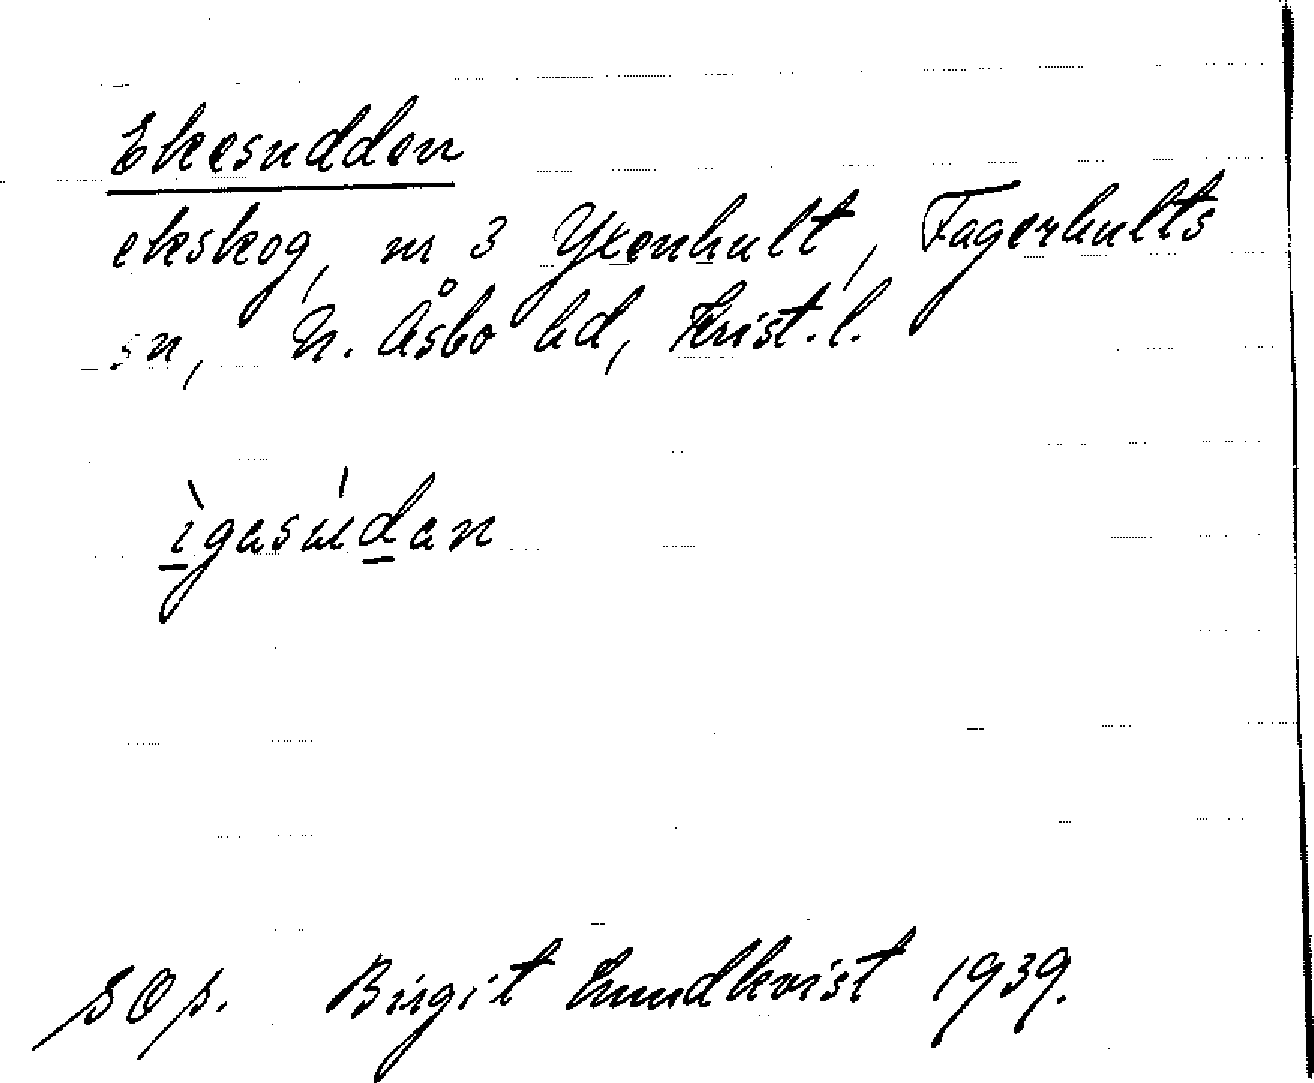 Ekesudden
ekskog, nr 3 Yxenhult, Fagerhults
sn, N. Åsbo hd, Krist.l.
ìgasúdan
SOp. Birgit Lundkvist 1939.